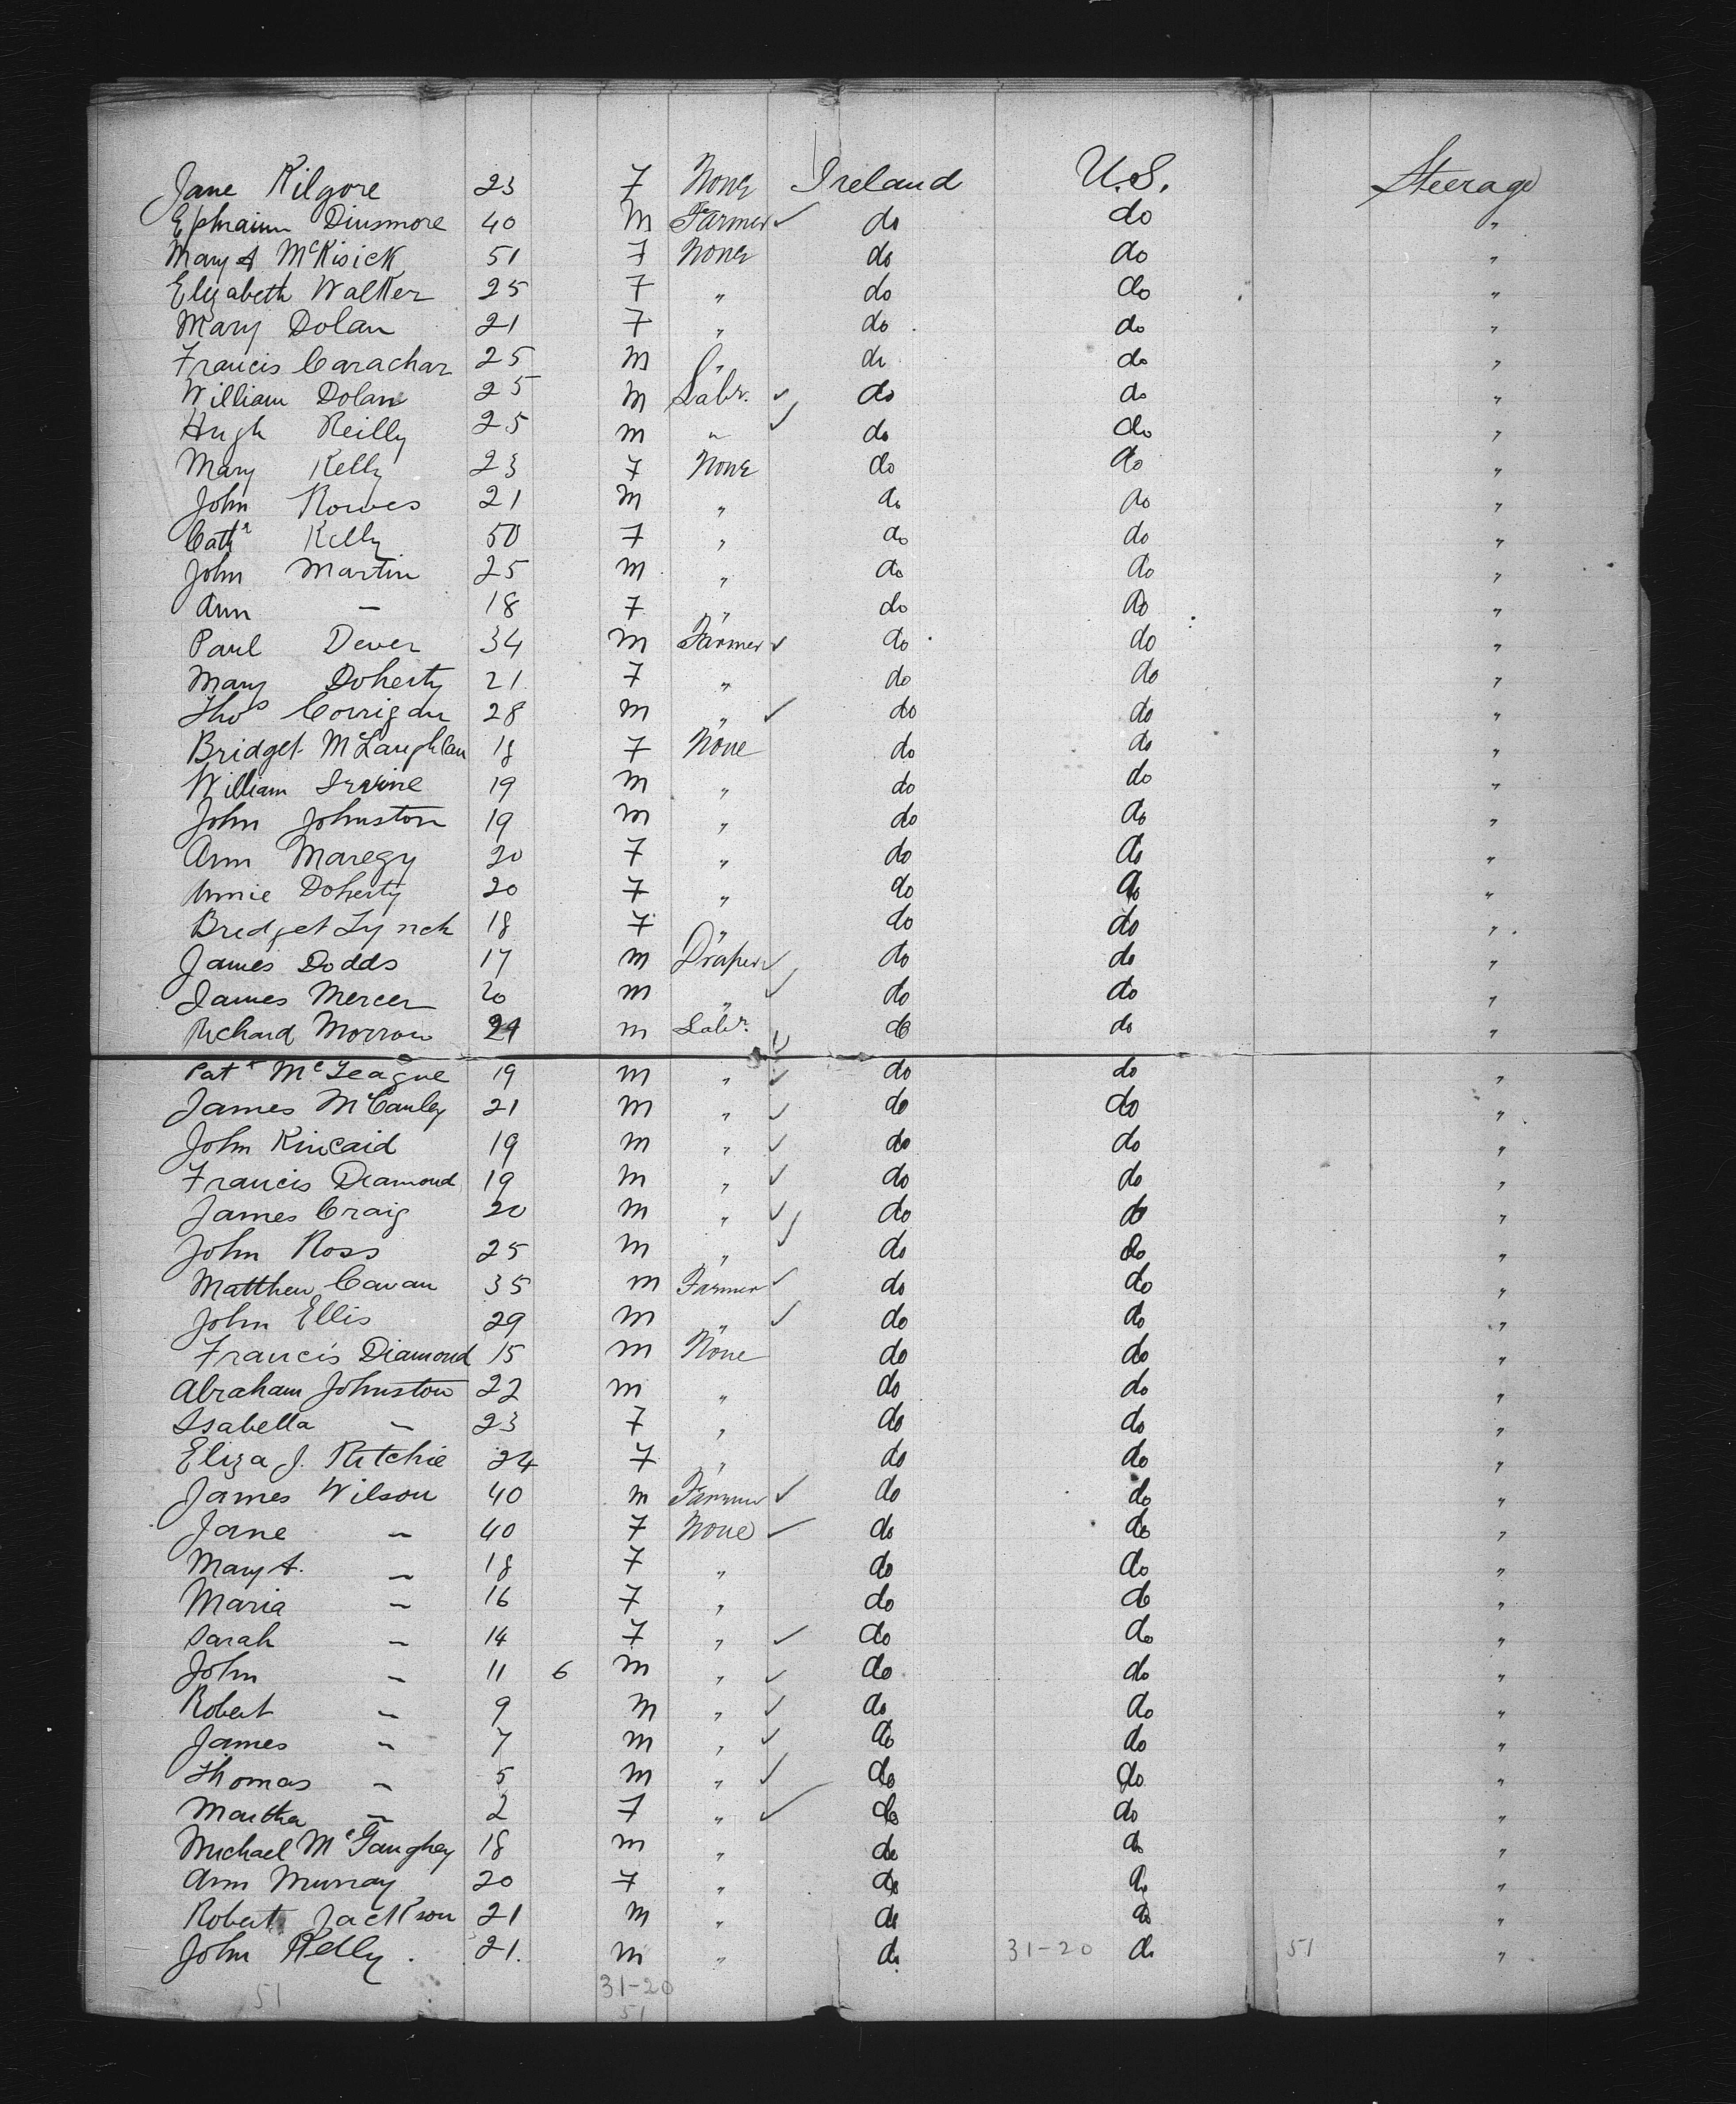 Jane Kilgore 23 F None Ireland U.S. Steerage
Ephraim Dinsmore 40 M Farmer ✓ do do "
Mary A McKisick 51 F None do do "
Elizabeth Walker 25 F " do do "
Mary Dolan 21 F " do do "
Francis Carachar 25 M " do do "
William Dolan 25 M Labr. ✓ do do "
Hugh Reilly 25 M " ✓ do do "
Mary Kelly 23 F None do do "
John Rowes 21 M " do do "
Cathe Kelly 50 F " do do "
John Martin 25 M " do do "
Ann — 18 F " do do "
Paul Dever 34 M Farmer ✓ do do "
Mary Doherty 21 F " do do "
Thos Corrigan 28 M " ✓ do do "
Bridget McLaughlan 18 F None do do "
William Irvine 19 M " do do "
John Johnston 19 M " do do "
Ann Maregy 20 F " do do "
Annie Doherty 20 F " do do "
Bridget Lynch 18 F " do do "
James Dodds 17 M Draper ✓ do do "
James Mercer 20 M " ✓ do do "
Richard Morrow 21 M Labr. ✓ do do "
Patk McTeague 19 M " ✓ do do "
James McCauley 21 M " ✓ do do "
John Kincaid 19 M " ✓ do do "
Francis Diamond 19 M " ✓ do do "
James Craig 20 M " ✓ do do "
John Ross 25 M " ✓ do do "
Matthew Cavan 35 M Farmer ✓ do do "
John Ellis 29 M " ✓ do do "
Francis Diamond 15 M None do do "
Abraham Johnston 22 M " do do "
Isabella — 23 F " do do "
Eliza J. Ritchie 24 F " do do "
James Wilson 40 M Farmer ✓ do do "
Jane — 40 F None ✓ do do "
Mary A. — 18 F " do do "
Maria — 16 F " do do "
Sarah — 14 F " ✓ do do "
John — 11 6 M " ✓ do do "
Robert — 9 M " ✓ do do "
James — 7 M " ✓ do do "
Thomas — 5 M " ✓ do do "
Martha — 2 F " ✓ do do "
Michael McGaughey 18 M " do do "
Ann Murray 20 F " do do "
Robert Jackson 21 M " do do "
John Kelly. 21. M " do 31-20 do 51 "
51 31-20
51